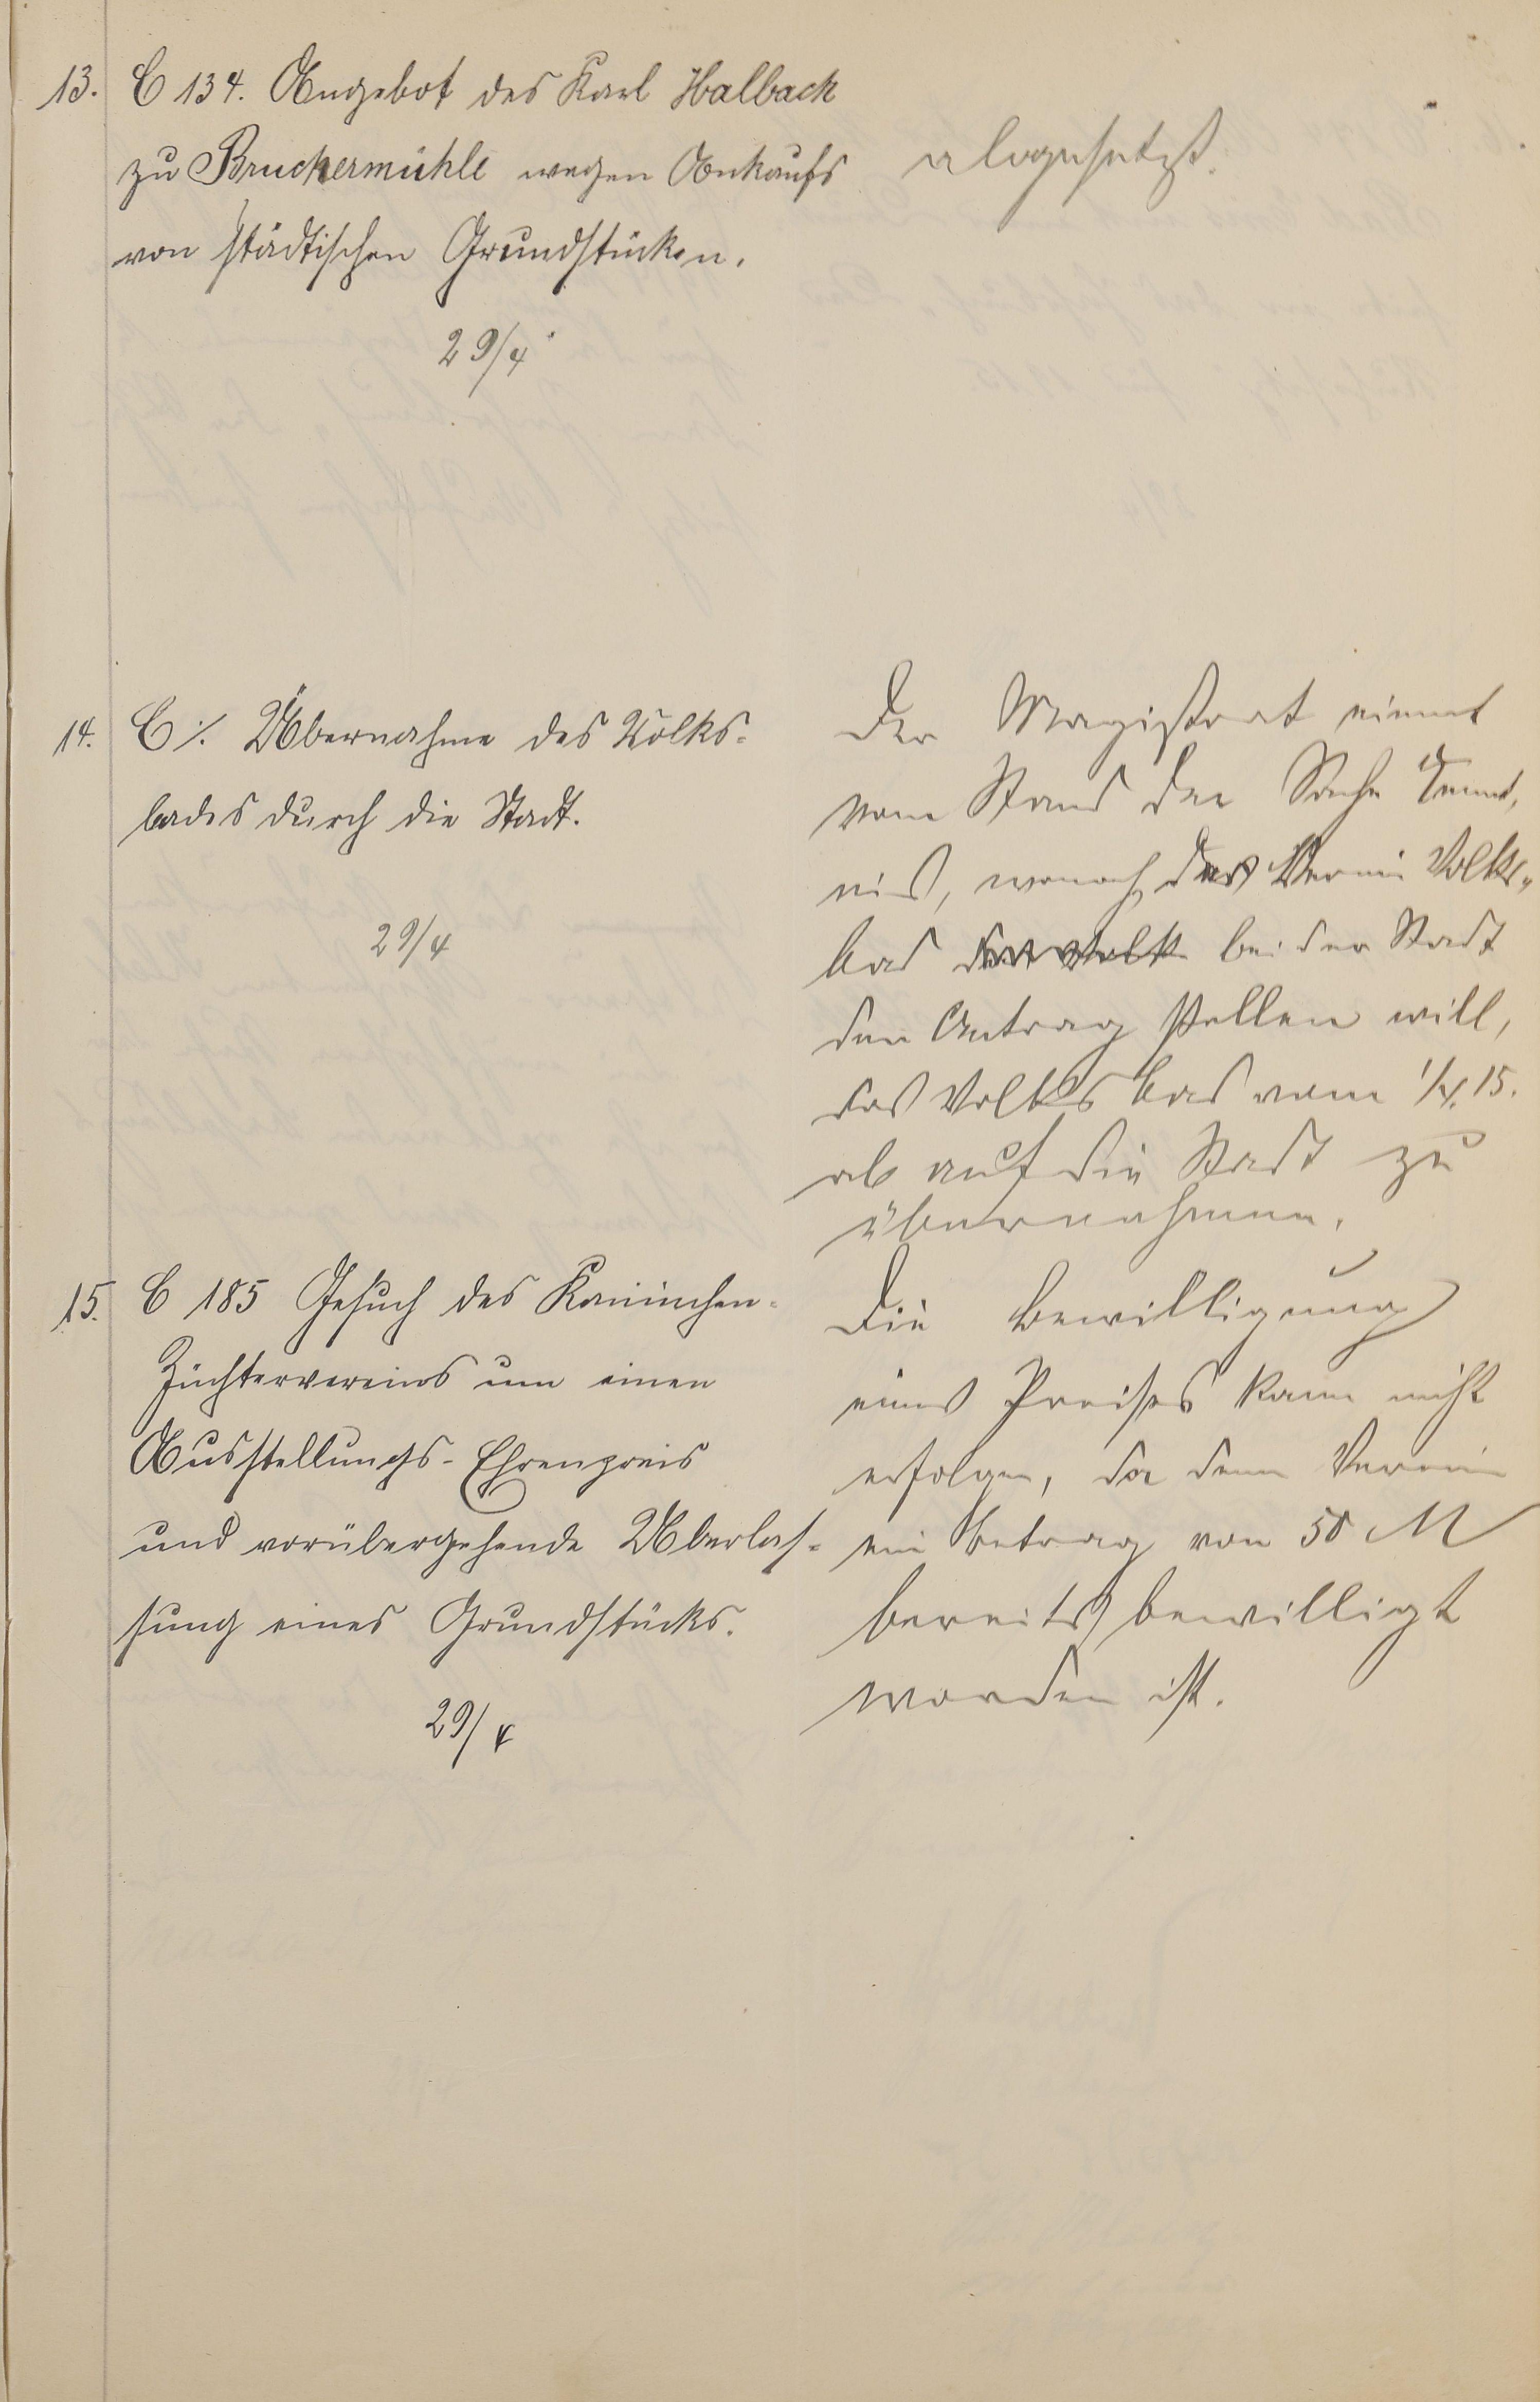 13. C 134. Angebot des Karl Halbach
zu Bruchermühle wegen Ankaufs
von städtischen Grundstücken.
29/4
abgesetzt.
14. C ./. Übernahme des Volks-
bades durch die Stadt.
29/4
Der Magistrat nimmt
vom Stand der Sache Kennt-
nis, wonach der Verein Volks-
bad bei der Stadt
den Antrag stellen will,
das Volksbad vom 1/4. 15.
ab auf die Stadt zu
übernehmen.
15. C 185 Gesuch des Kaninchen-
Züchtervereins um einen
Ausstellungs-Ehrenpreis
und vorübergehende Überlas-
sung eines Grundstücks.
29/4
Die Bewilligung
eines Preises kann nicht
erfolgen, da dem Verein
ein Betrag von 50 M
bereits bewilligt
worden ist.